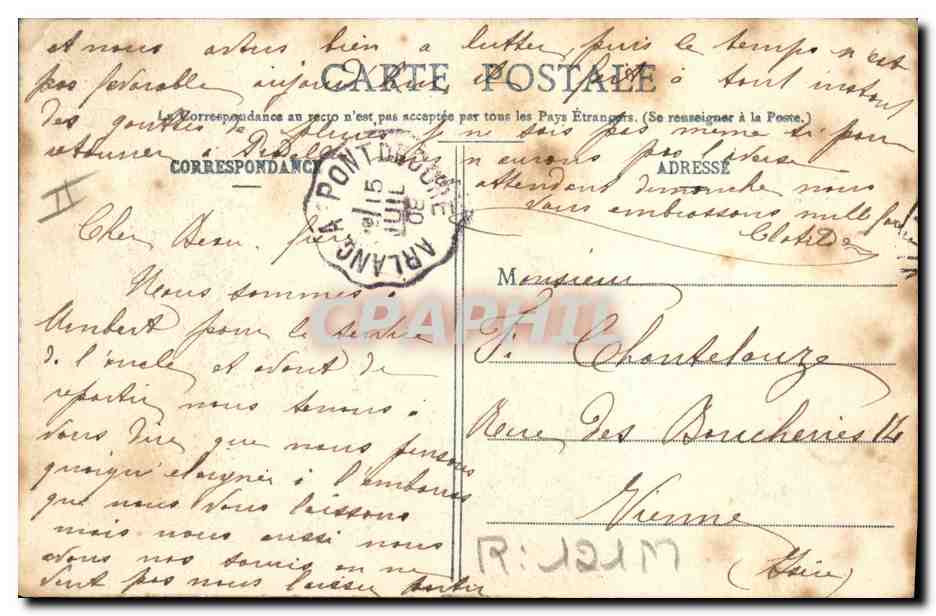 et nous avons bien à lutter, puis le temps n'est
pas favorable aujourd'hui et fait à tout instant
CARTE POSTALE
La Correspondance au recto n'est pas acceptée par tous les Pays Étrangers. (Se renseigner à la Poste.)
des gouttes de pluies je ne sais pas même si pour
retourner à nous n'aurons pas l'averse
CORRESPONDANCE
ADRESSE
attendant dimanche nous
vous embrassons mille fois
Clotilde
PONTDEDORE A ARLANC
15
JUIL
08
II
Cher Beau-frère
Nous sommes à
Ambert pour le service
de l'oncle et avant de
repartir nous tenons à
vous dire que nous pensons
quoiqu'éloigner à l'embarras
que nous vous laissons
mais nous aussi nous
avons nos soucis on ne
veut pas nous laisser partir
Monsieur
F. Chantelouze
Rue des Boucheries 14
Vienne
(Isère)
R: 121M
CPAPHIL